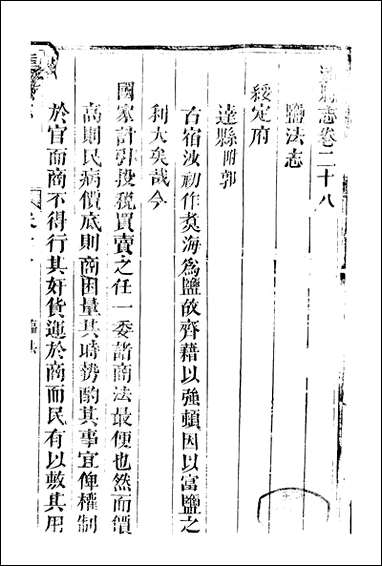 縣志卷二十八
鹽法志
綏定府
達縣附郭
古宿沙初作煑海為鹽故齊藉以強頼因以富鹽之
利大矣哉今
國家計引投税買賣之任一委諸商法最便也然而價
高則民病價底則商困量其時势酌其事宜俾權制
於官而商不得行其奸貨運於商而民有以敷其用